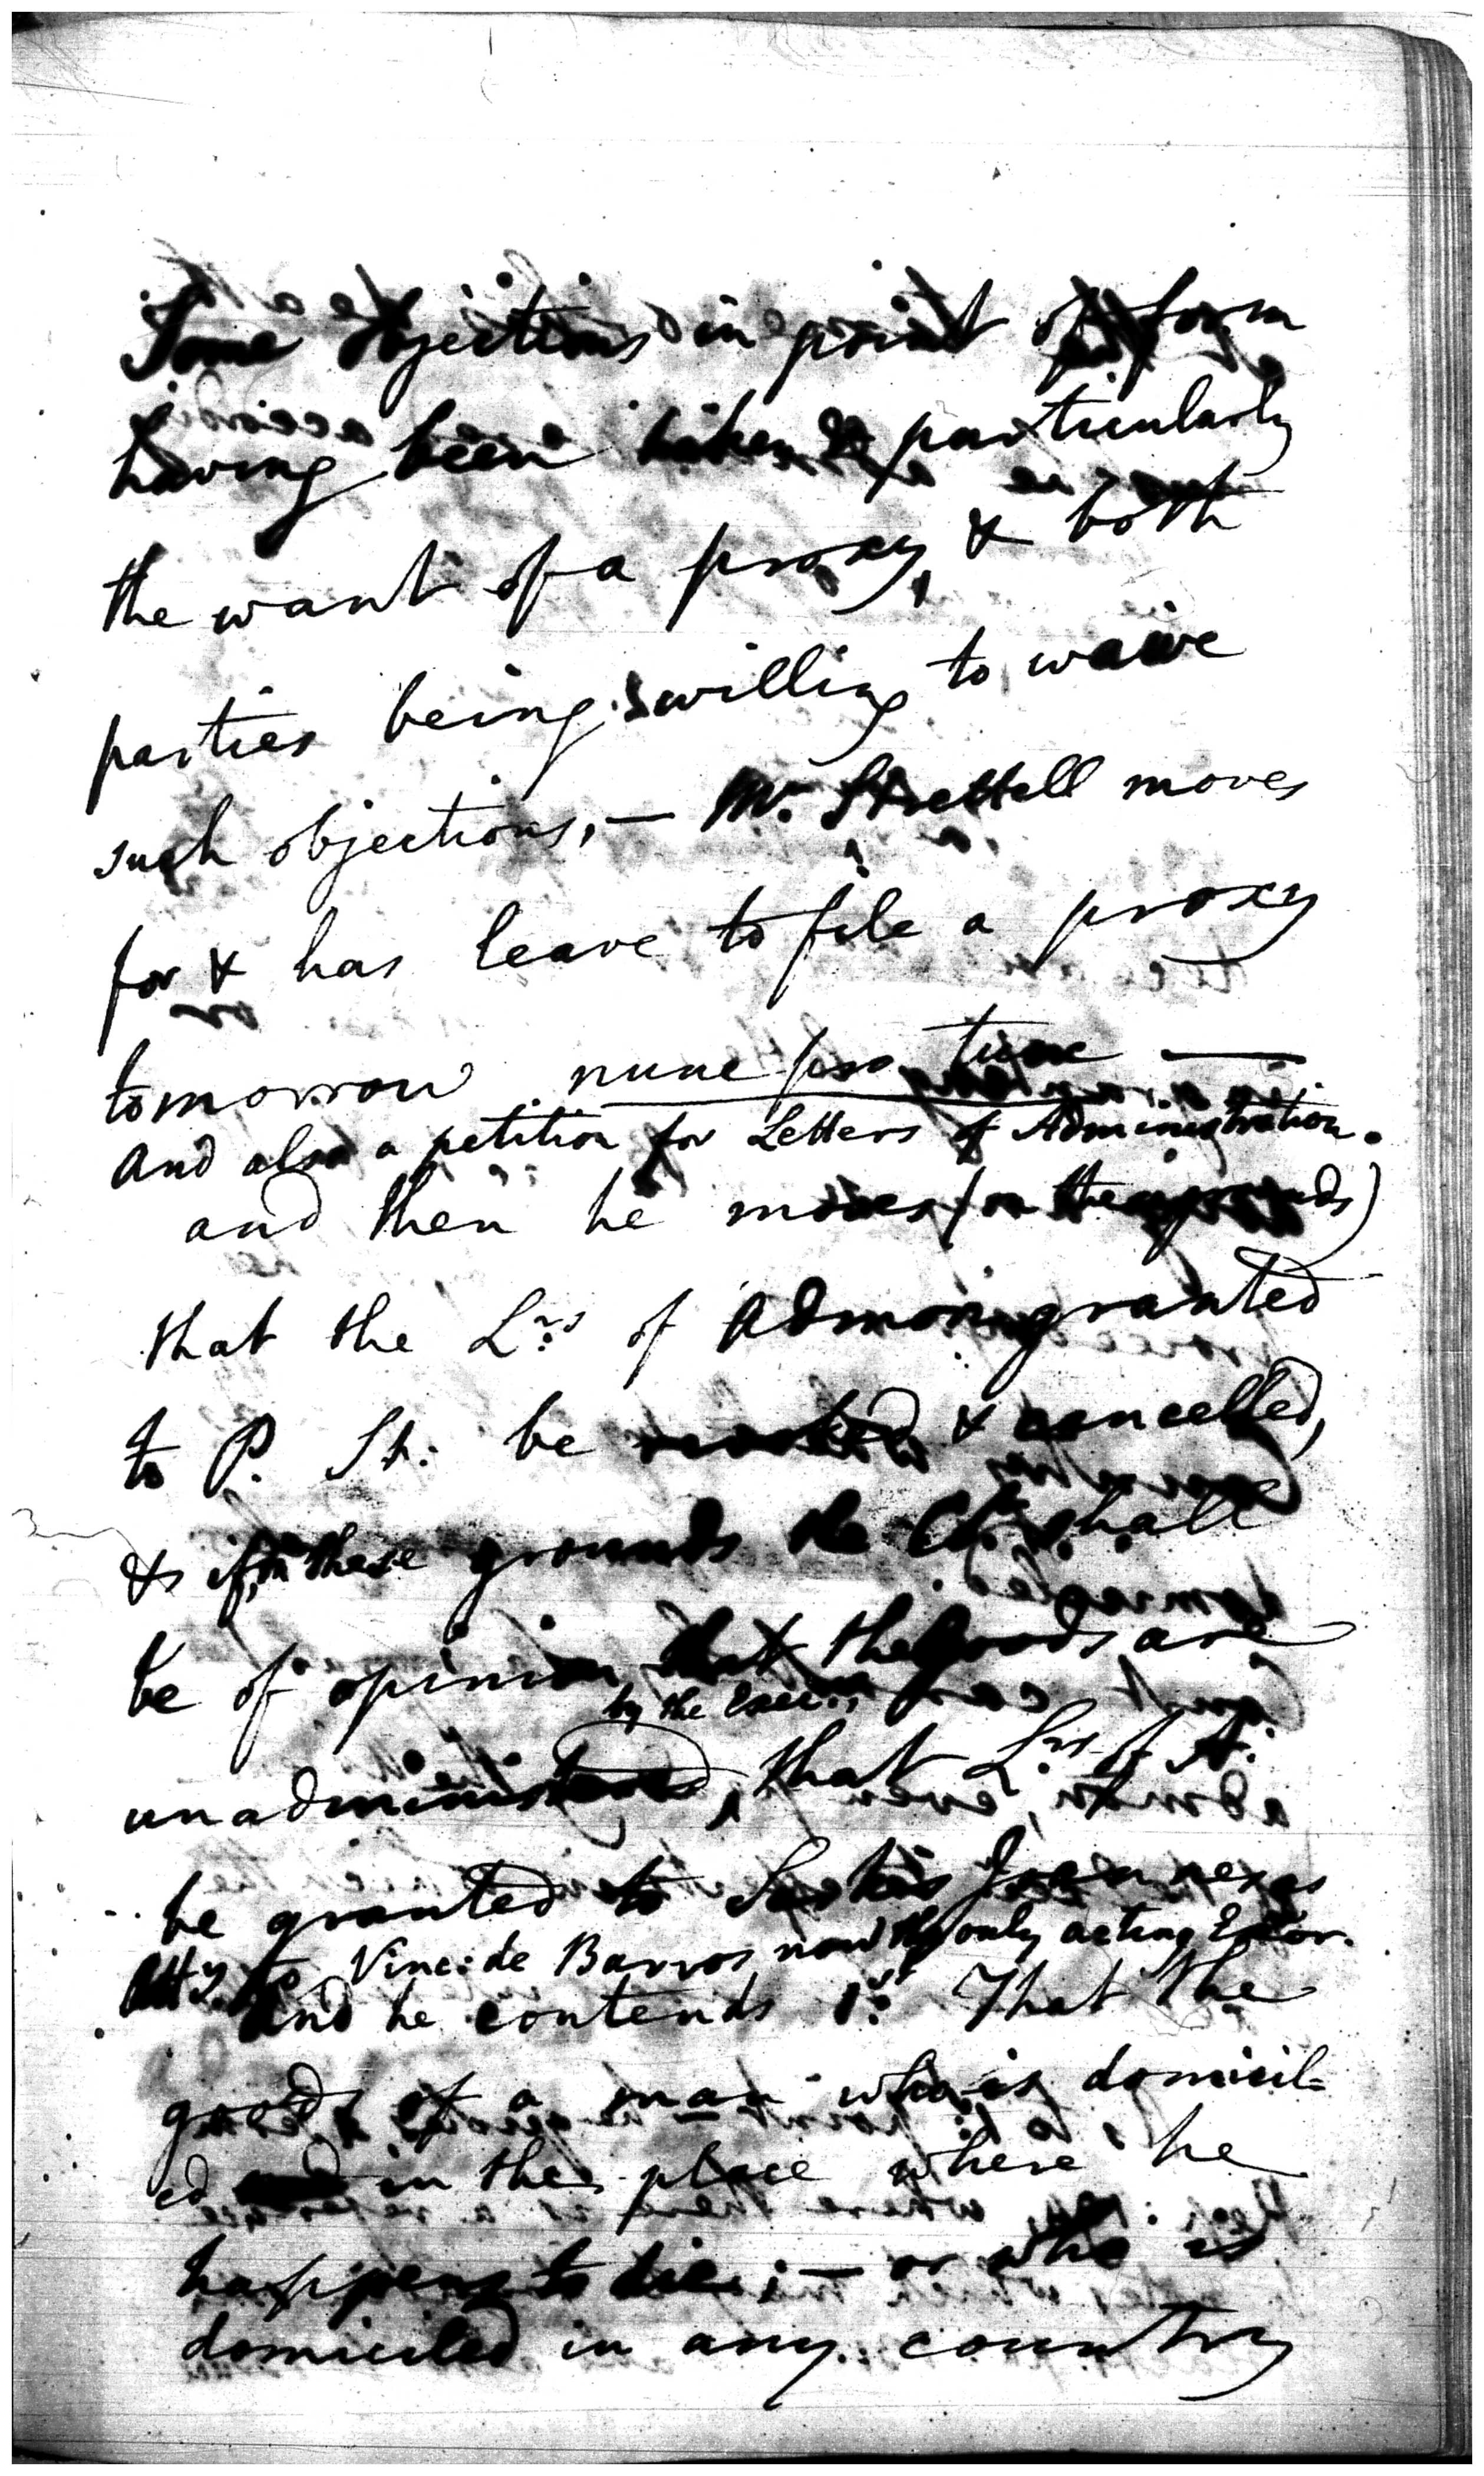 Some objections in point of form
having been taken & particularly
the want of a proxy, & both
parties being willing to wave
such objections, — Mr. Strettell moves
for & has leave to file a proxy
tomorrow nunc pro tunc —
And also a petition for Letters of Administration.
and then he moves (on the grounds)
that the Lrs. of Admon granted
to P. St. be revoked & cancelled,
& if on these grounds the Ct. shall
be of opinion that the goods are
by the Exec.
unadministered, that Lrs. of A.
be granted to Sarkis Joannes as
Atty. to Vinc: de Barros now the only acting Exor.
And he contends 1st. That the
goods of a man who is domicil-
ed in the place where he
happens to die; — or who is
domiciled in any country